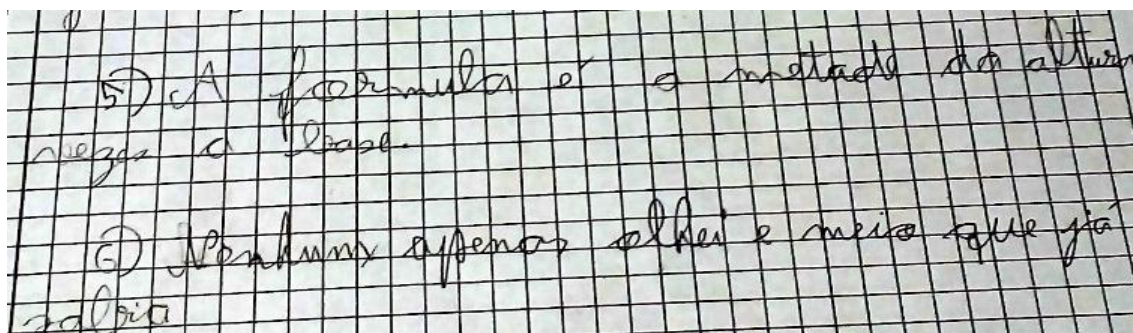 5) A formula é a metade da altura
vezes a base.
6) Nenhum apenas olhei e meio que já
sabia